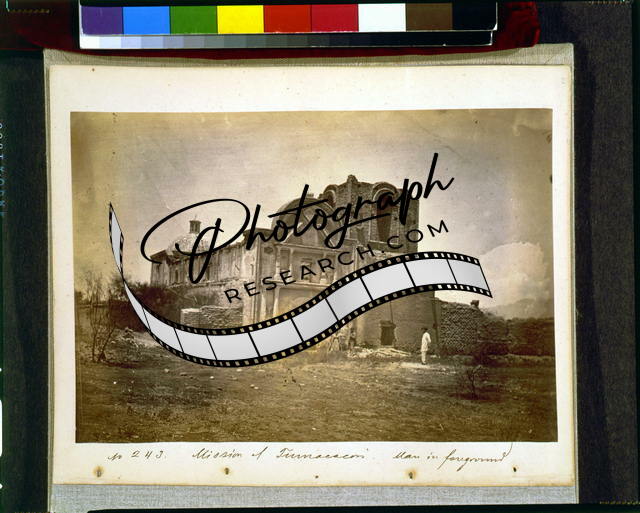 Photograph
RESEARCH.COM
No 243. Mission of Tumacacori. Man in foreground